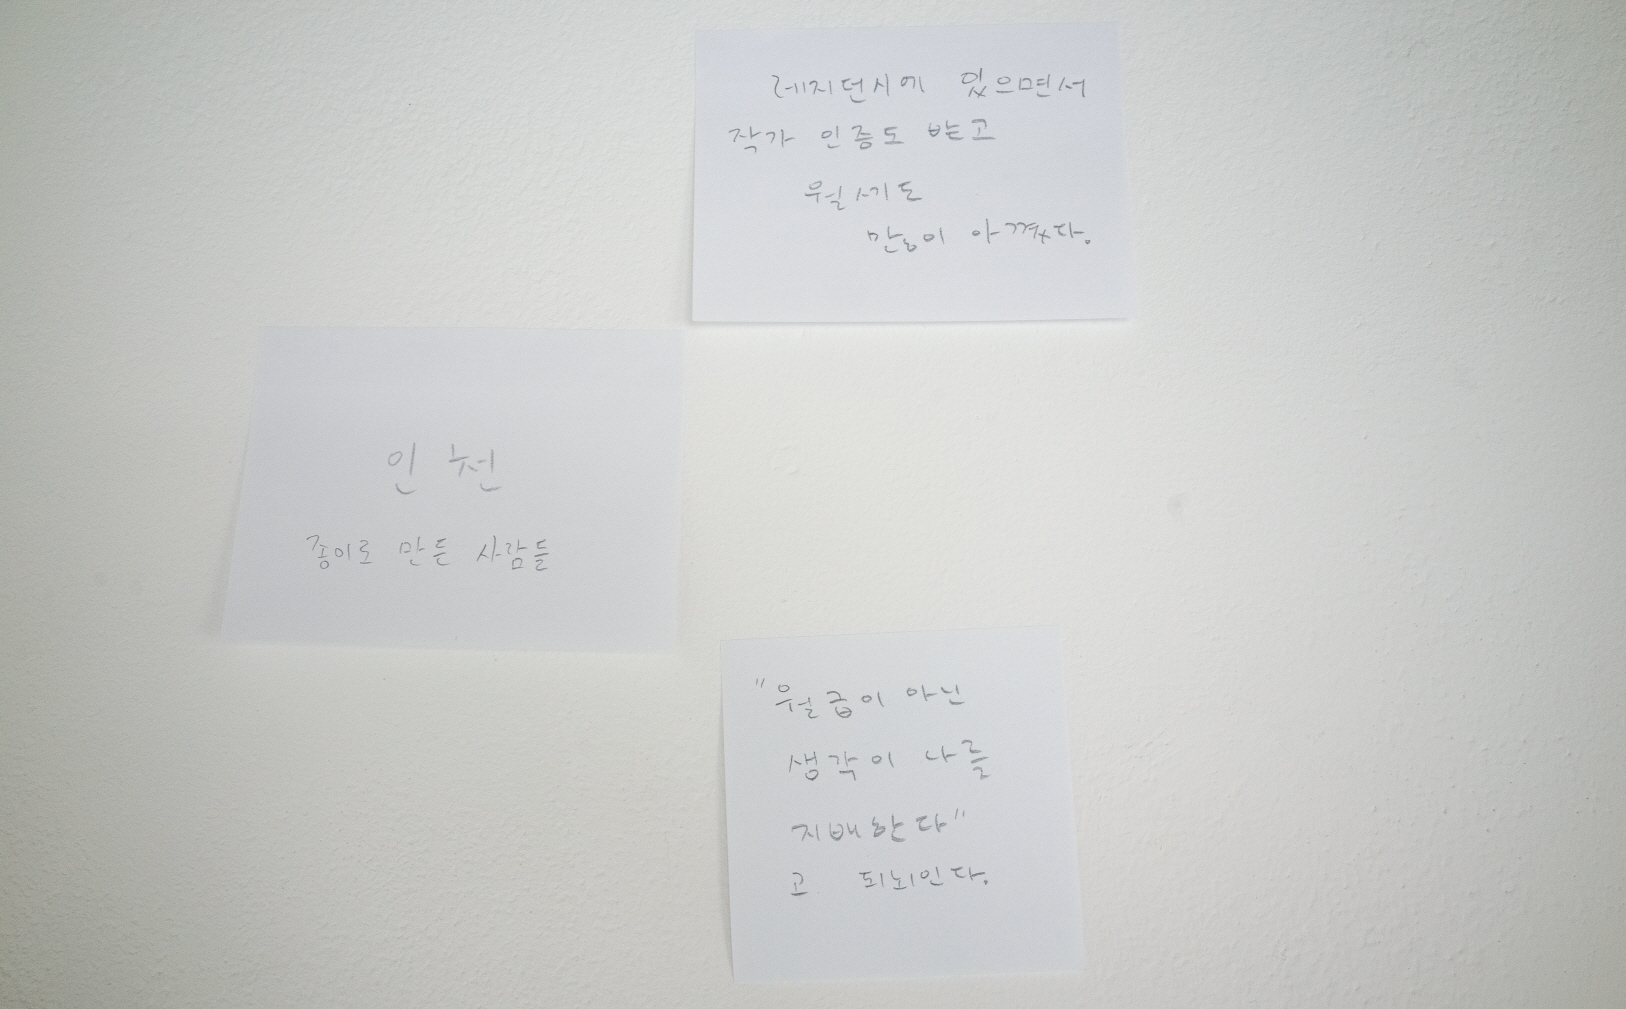 레지던시에 있으면서
작가 인증도 받고
월세도
많이 아꼈다.
인천
종이로 만든 사람들
"월급이 아닌
생각이 나를
지배한다"
고 되뇌인다.